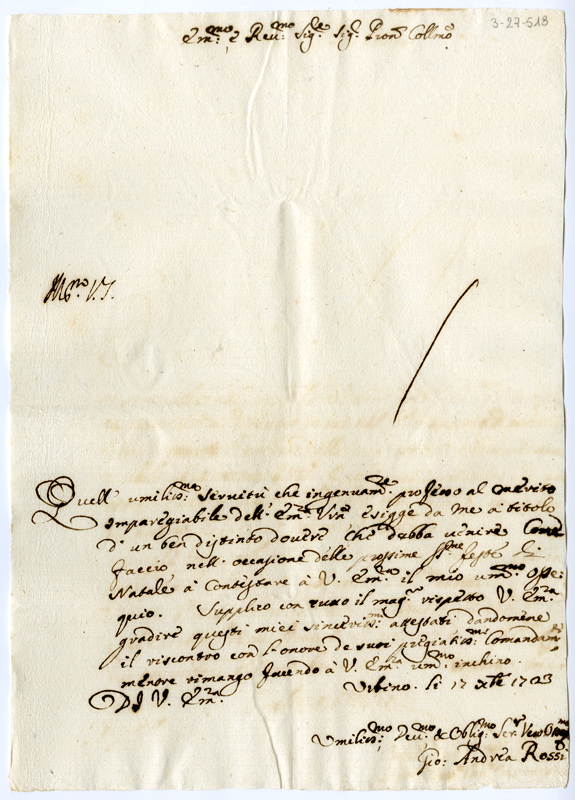 3-27-518
Em:mo e Reu:mo Sig:re Sig: Pron Collmo
Quell' umiliss:ma seruitù che ingenuam:te professo al merito
impareggiabile dell' Em:za Vra esigge da me à titolo
d' un ben distinto douere che debba uenire Come
faccio nell' occasione delle prossime SS:me feste di
Natale à Contestare à V. Em:za il mio um:mo osse:
quio. Supplico con tutto il mag:r rispetto V. Em:za
gradire questi miei sinceriss:mi attestati dandomene
il riscontro con l'onore de suoi pregiatiss:mi Comandam:ti
mentre rimango facendo à V. Em:za um:mo inchino.
Di V. Em:za
Vrbino li 17 Xbre 1723
Vmiliss:mo Deu:mo & Oblig:mo Ser:re Vero
Gio: Andrea Rossi